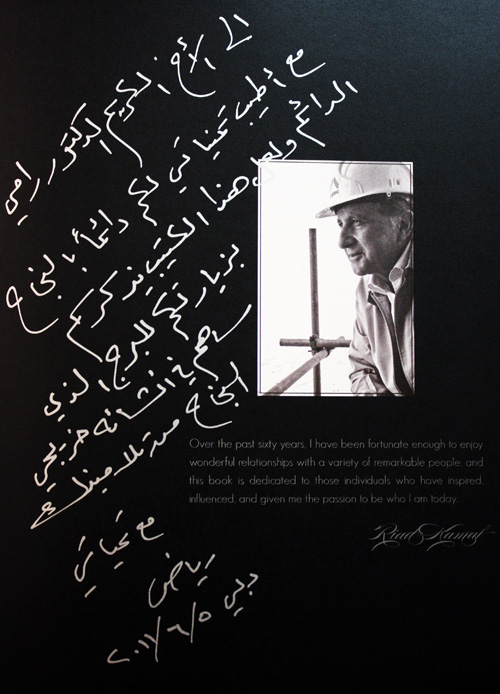 الى الأخ الكريم الدكتور رامي
مع أطيب تحياتي لكم دائماً بالنجاح
الدائم ولعل هذا الكتيب يذكركم
بزيارتكم للبرج الذي
ساهم في انشائه خريجي
النجاح من تلاميذك
مع تحياتي
رياض
دبي
Over the past sixty years, I have been fortunate enough to enjoy
wonderful relationships with a variety of remarkable people, and
this book is dedicated to those individuals who have inspired,
influenced, and given me the passion to be who I am today.
Riad Kamal